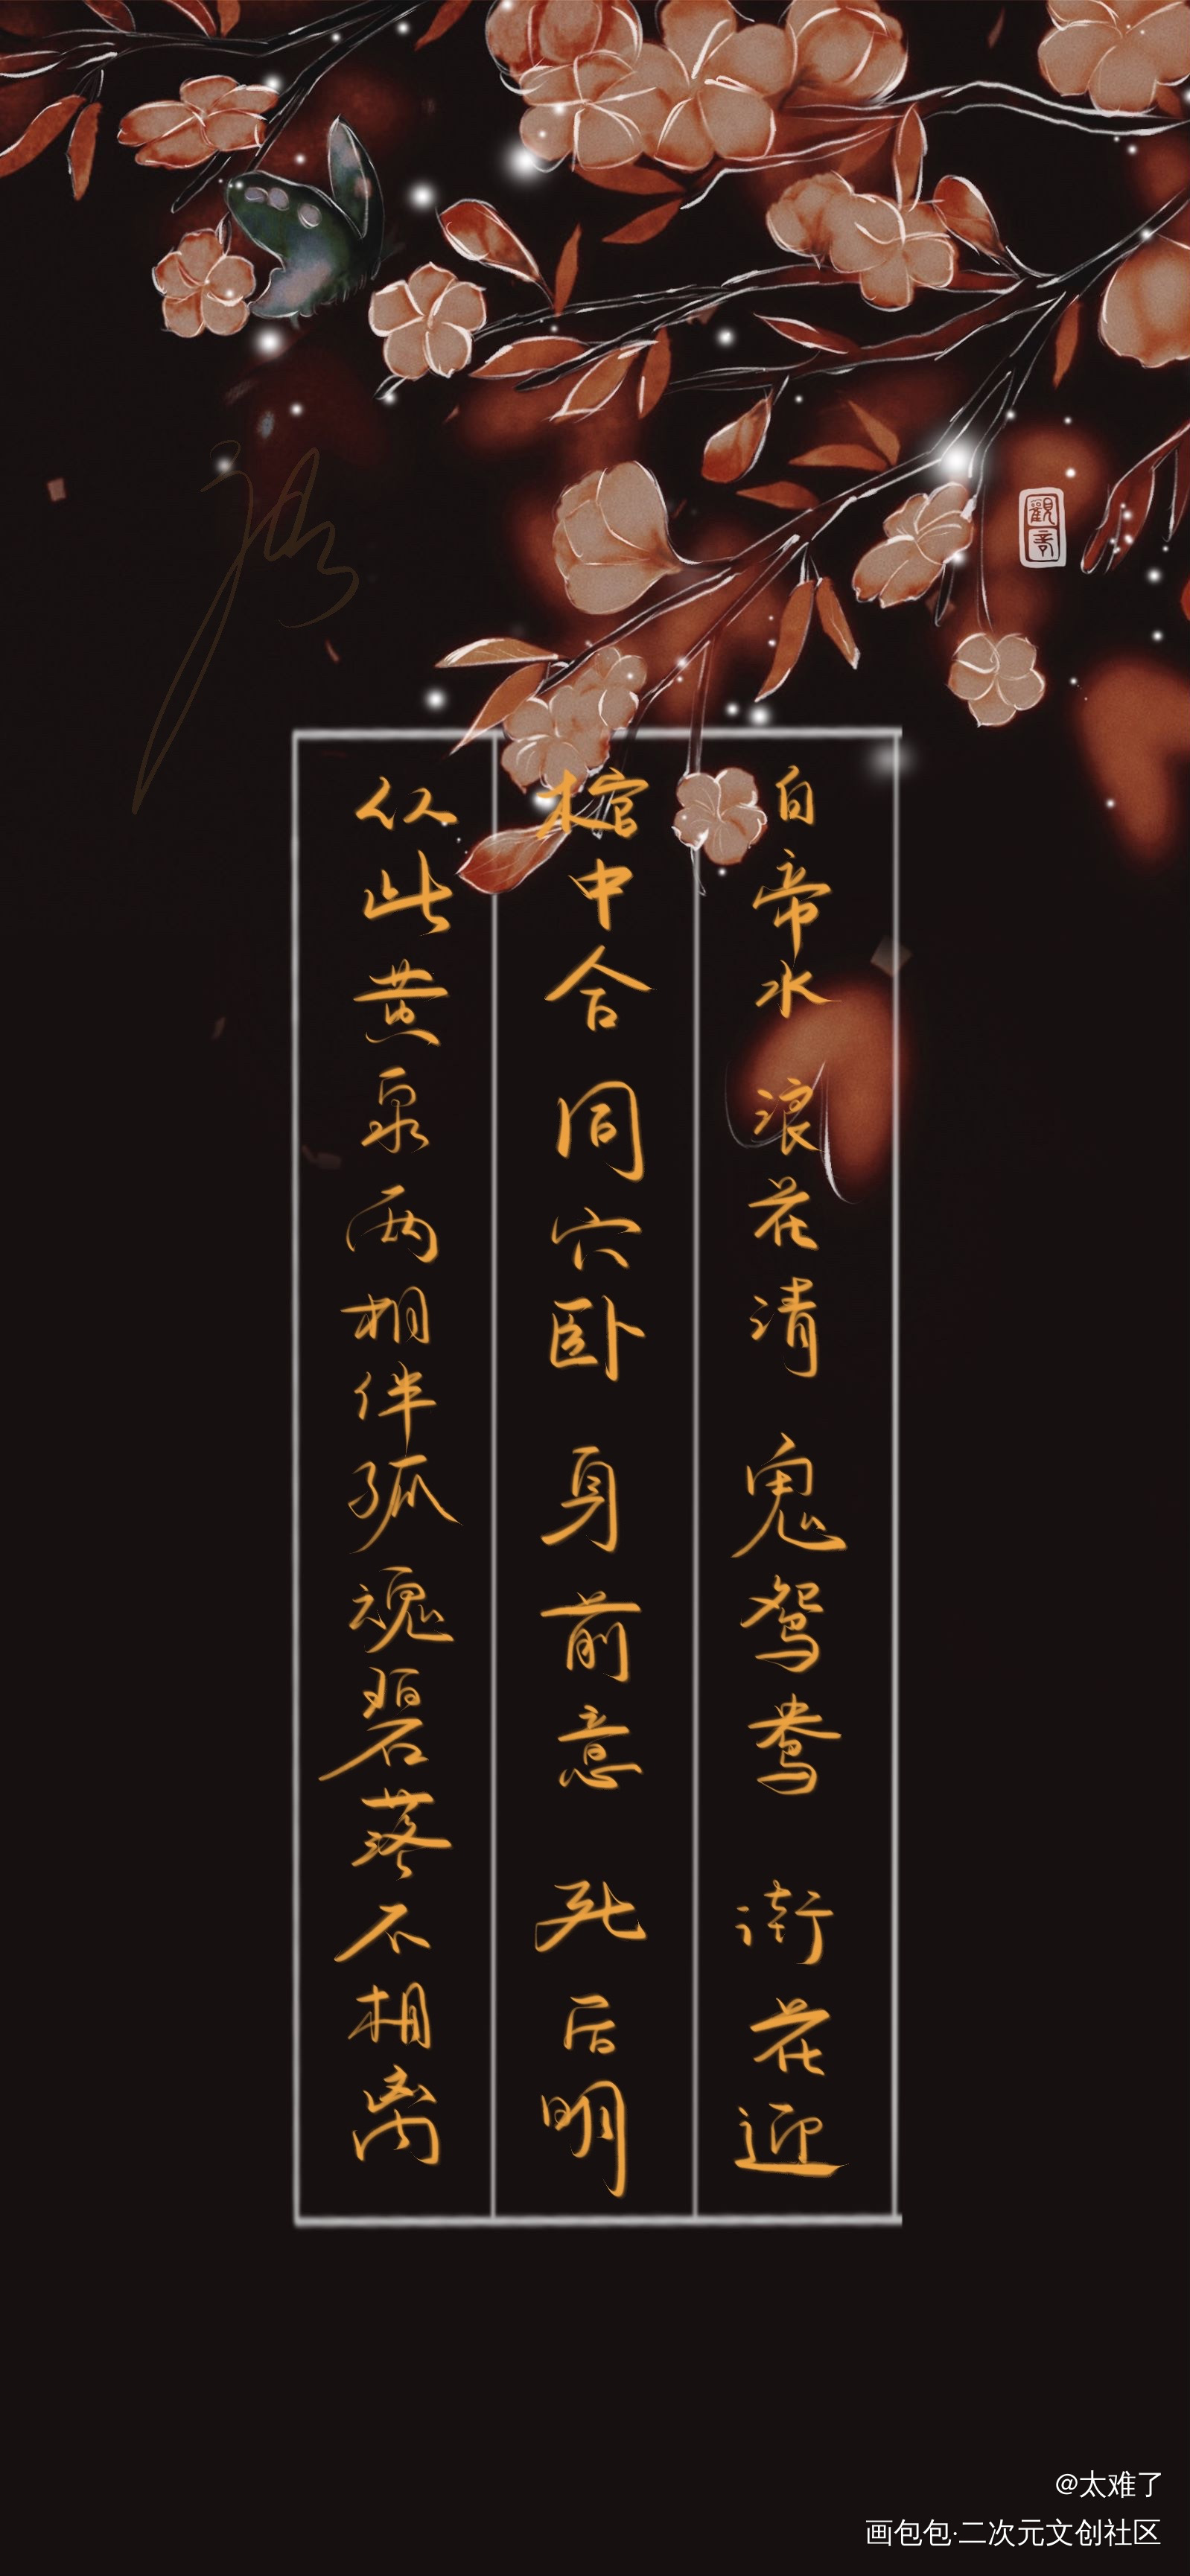 白帝水 浪花清 鬼鸳鸯 街花迎
棺中合 同穴卧 身前意 死后明
从此黄泉两相伴孤魂碧落不相离
@太难了
画包包·二次元文创社区